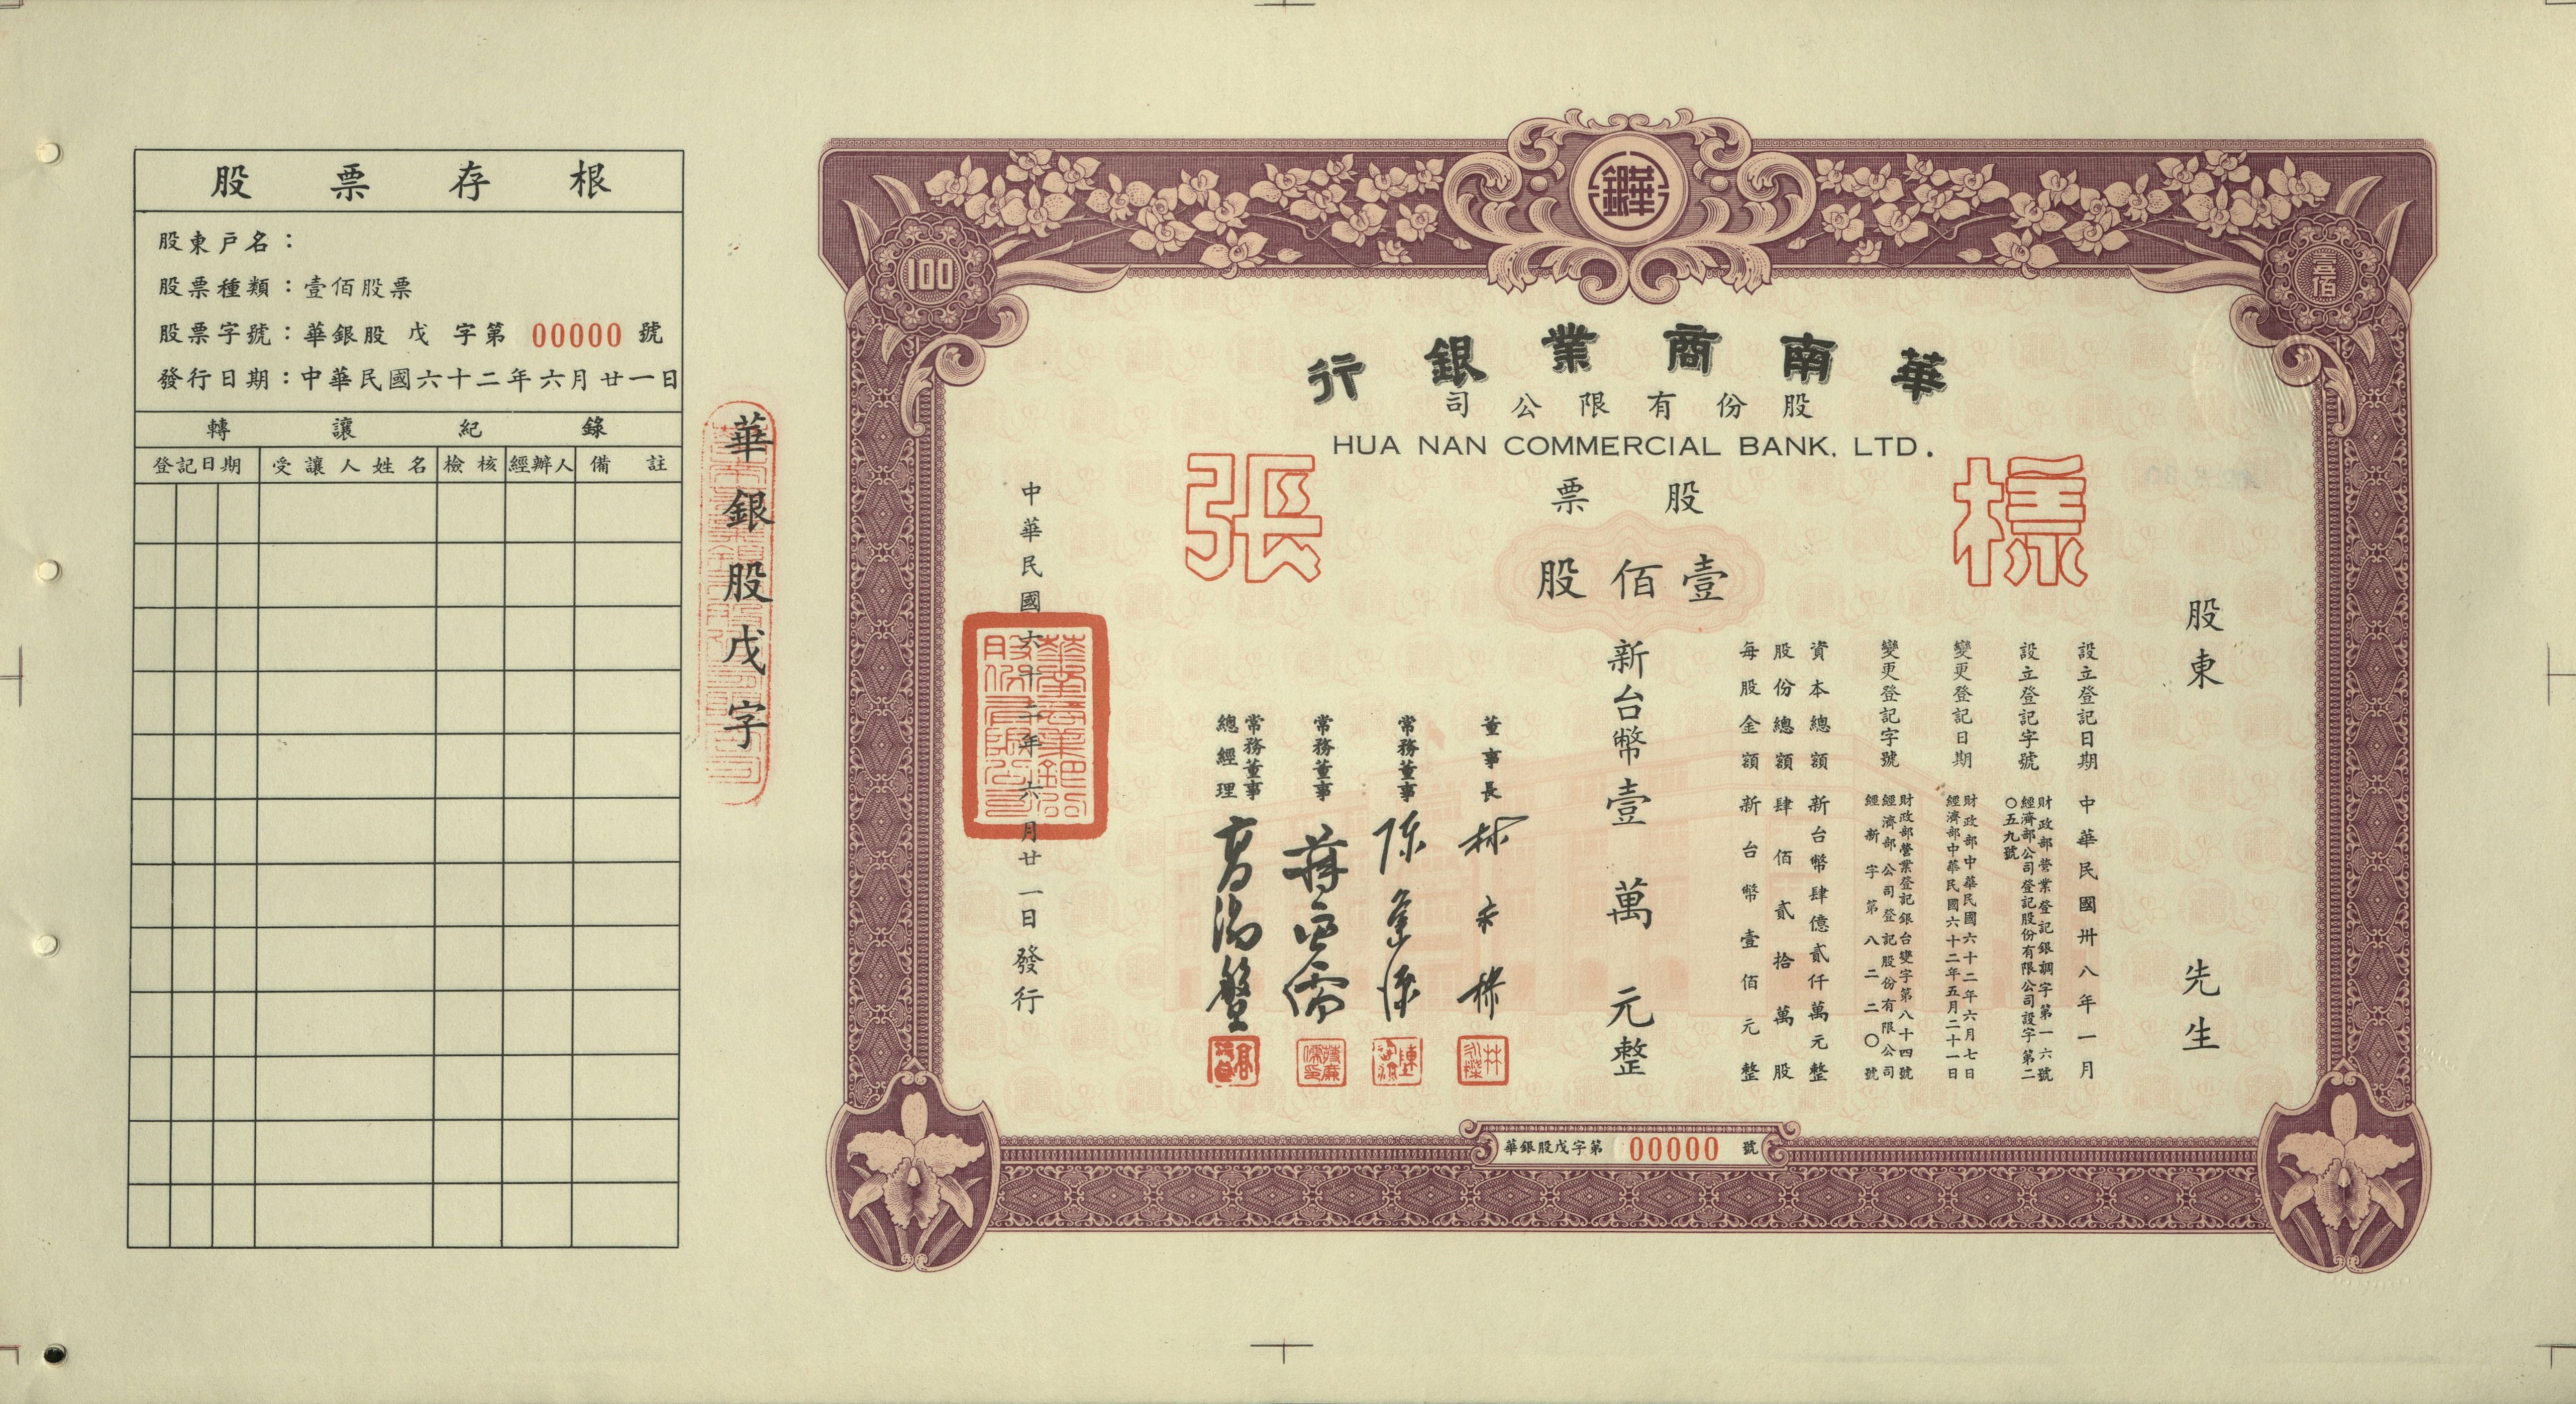 股票存根
股東戶名：
股票種類：壹佰股票
股票字號：華銀股 戊 字第 00000 號
發行日期：中華民國六十二年六月廿一日
轉讓紀錄
登記日期 受讓人姓名 檢核 經辦人 備註
華銀股戊字
100
壹佰
華南商業銀行
股份有限公司
HUA NAN COMMERCIAL BANK, LTD.
股票
樣張
壹佰股
股東 先生
設立登記日期 中華民國卅八年一月
設立登記字號 財政部營業登記銀調字第一六號
經濟部公司登記股份有限公司設字第二
〇五九號
變更登記日期 財政部中華民國六十二年六月七日
經濟部中華民國六十二年五月二十一日
變更登記字號 財政部營業登記銀台變字第八十四號
經濟部公司登記股份有限公司
經新字第八二二〇號
資本總額 新台幣肆億貳仟萬元整
股份總額 肆佰貳拾萬股
每股金額 新台幣壹佰元整
新台幣壹萬元整
董事長
常務董事
常務董事
常務董事
總經理
中華民國六十二年六月廿一日發行
華銀股戊字第 00000 號